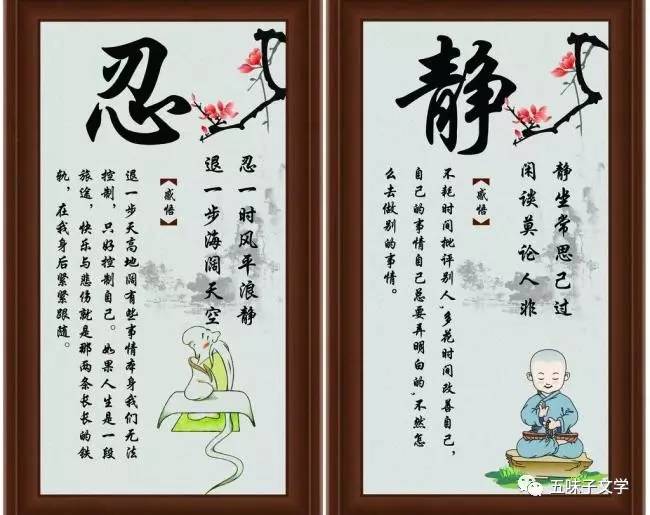 忍
忍一时风平浪静
退一步海阔天空
【感悟】
退一步天高地阔有些事情本身我们无法
控制，只好控制自己。如果人生是一段
旅途，快乐与悲伤就是那两条长长的铁
轨，在我身后紧紧跟随。
静
静坐常思己过
闲谈莫论人非
【感悟】
不耗时间批评别人,多花时间改善自己，
自己的事情自己总要弄明白的,不然怎
么去做别的事情。
五味子文学